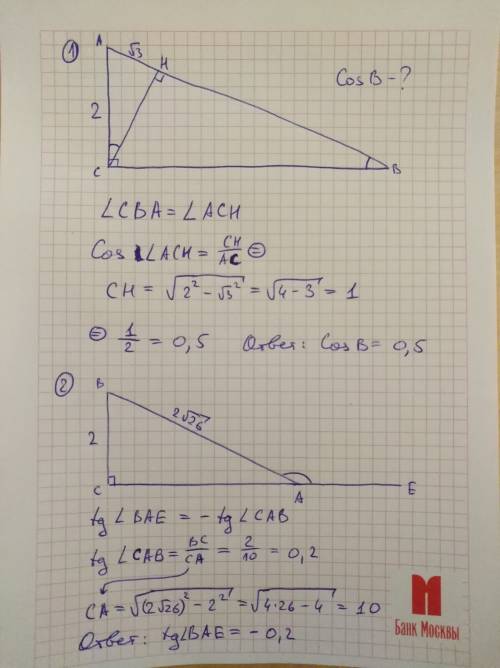 ①
A
√3
H
Cos B - ?
2
C
B
∠CBA = ∠ACH
Cos ∠ACH = CH/AC ⊜
CH = √(2² - √3²) = √(4-3) = 1
⊜ 1/2 = 0,5 Ответ: Cos B = 0,5
②
B
2√26
2
C
A
E
tg ∠BAE = - tg ∠CAB
tg ∠CAB = BC/CA = 2/10 = 0,2
CA = √((2√26)² - 2²) = √(4·26 - 4) = 10
Ответ: tg∠BAE = - 0,2
Банк Москвы